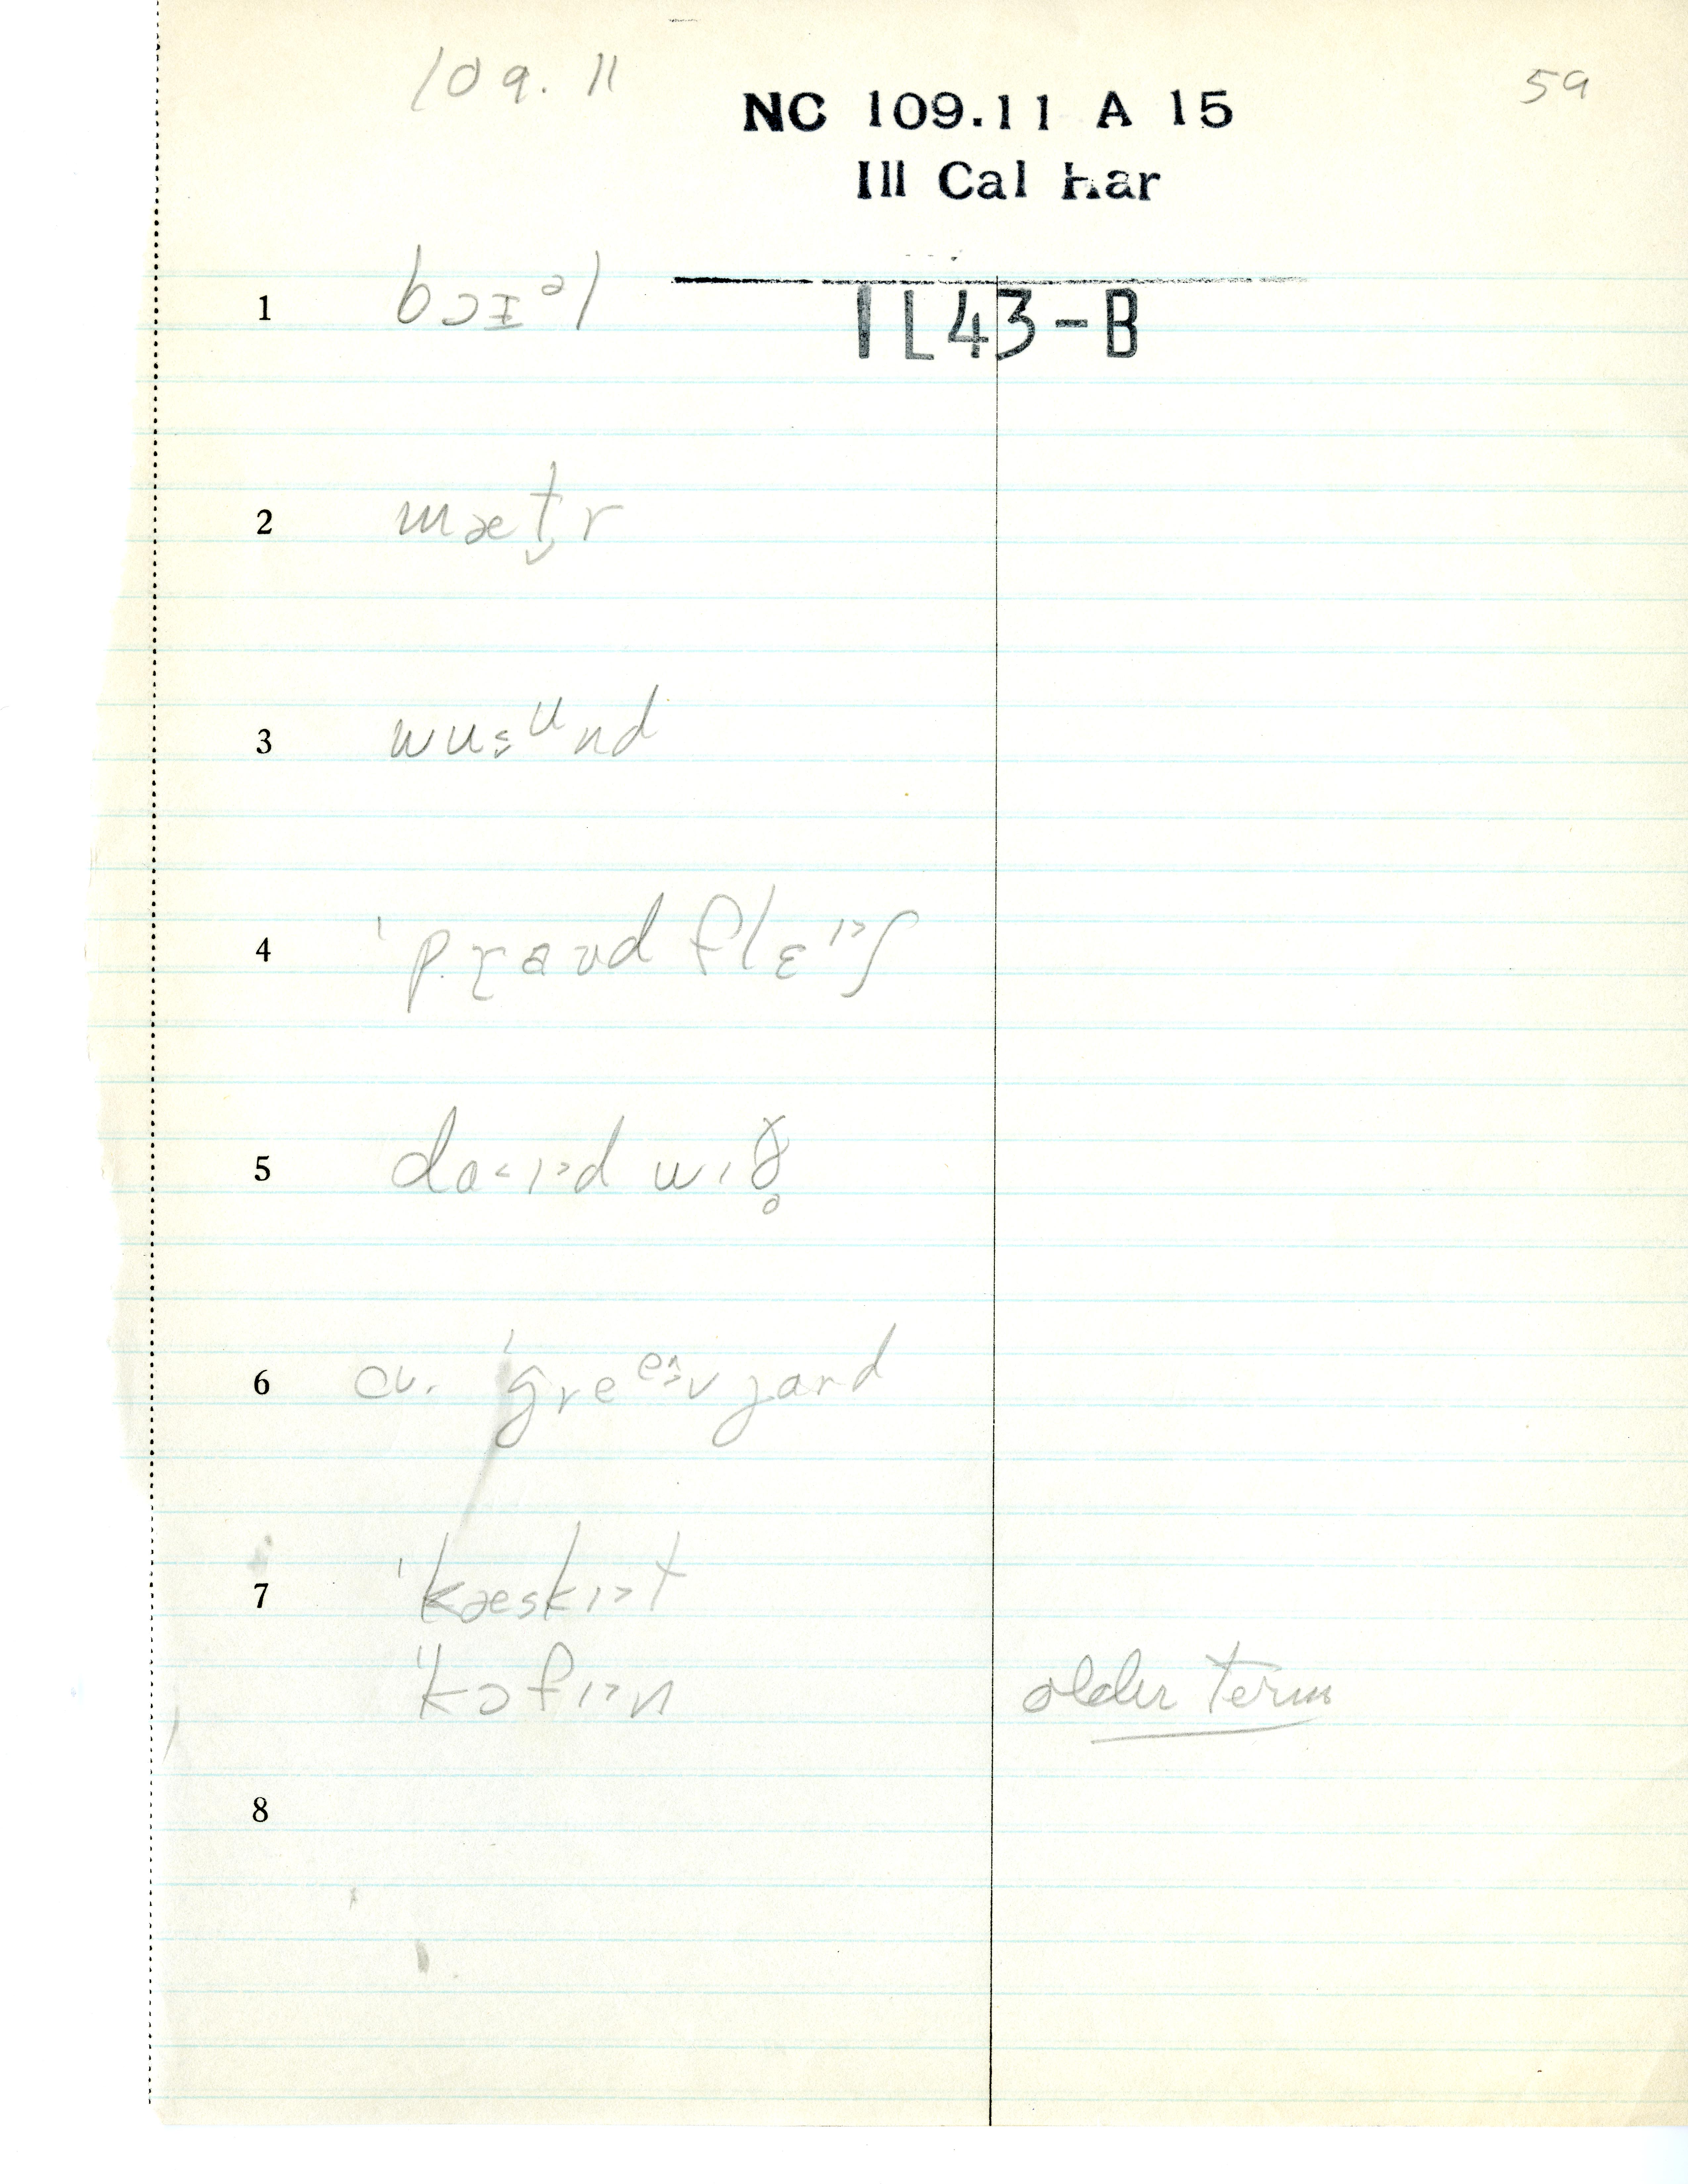 109.11
59
NC 109.11 A 15
Ill Cal Har
IL43-B
1 bɔɪᵊl
2 mæt̬r
3 wusᵘnd
4 ˈpraʊd flɛɪ˃ʃ
5 da˂ɪ˃d wɪð̥
6 a. ˈgreᵉ˃vjard
7 ˈkæskɪ˃t
ˈkɔfɪ˃n older term
8